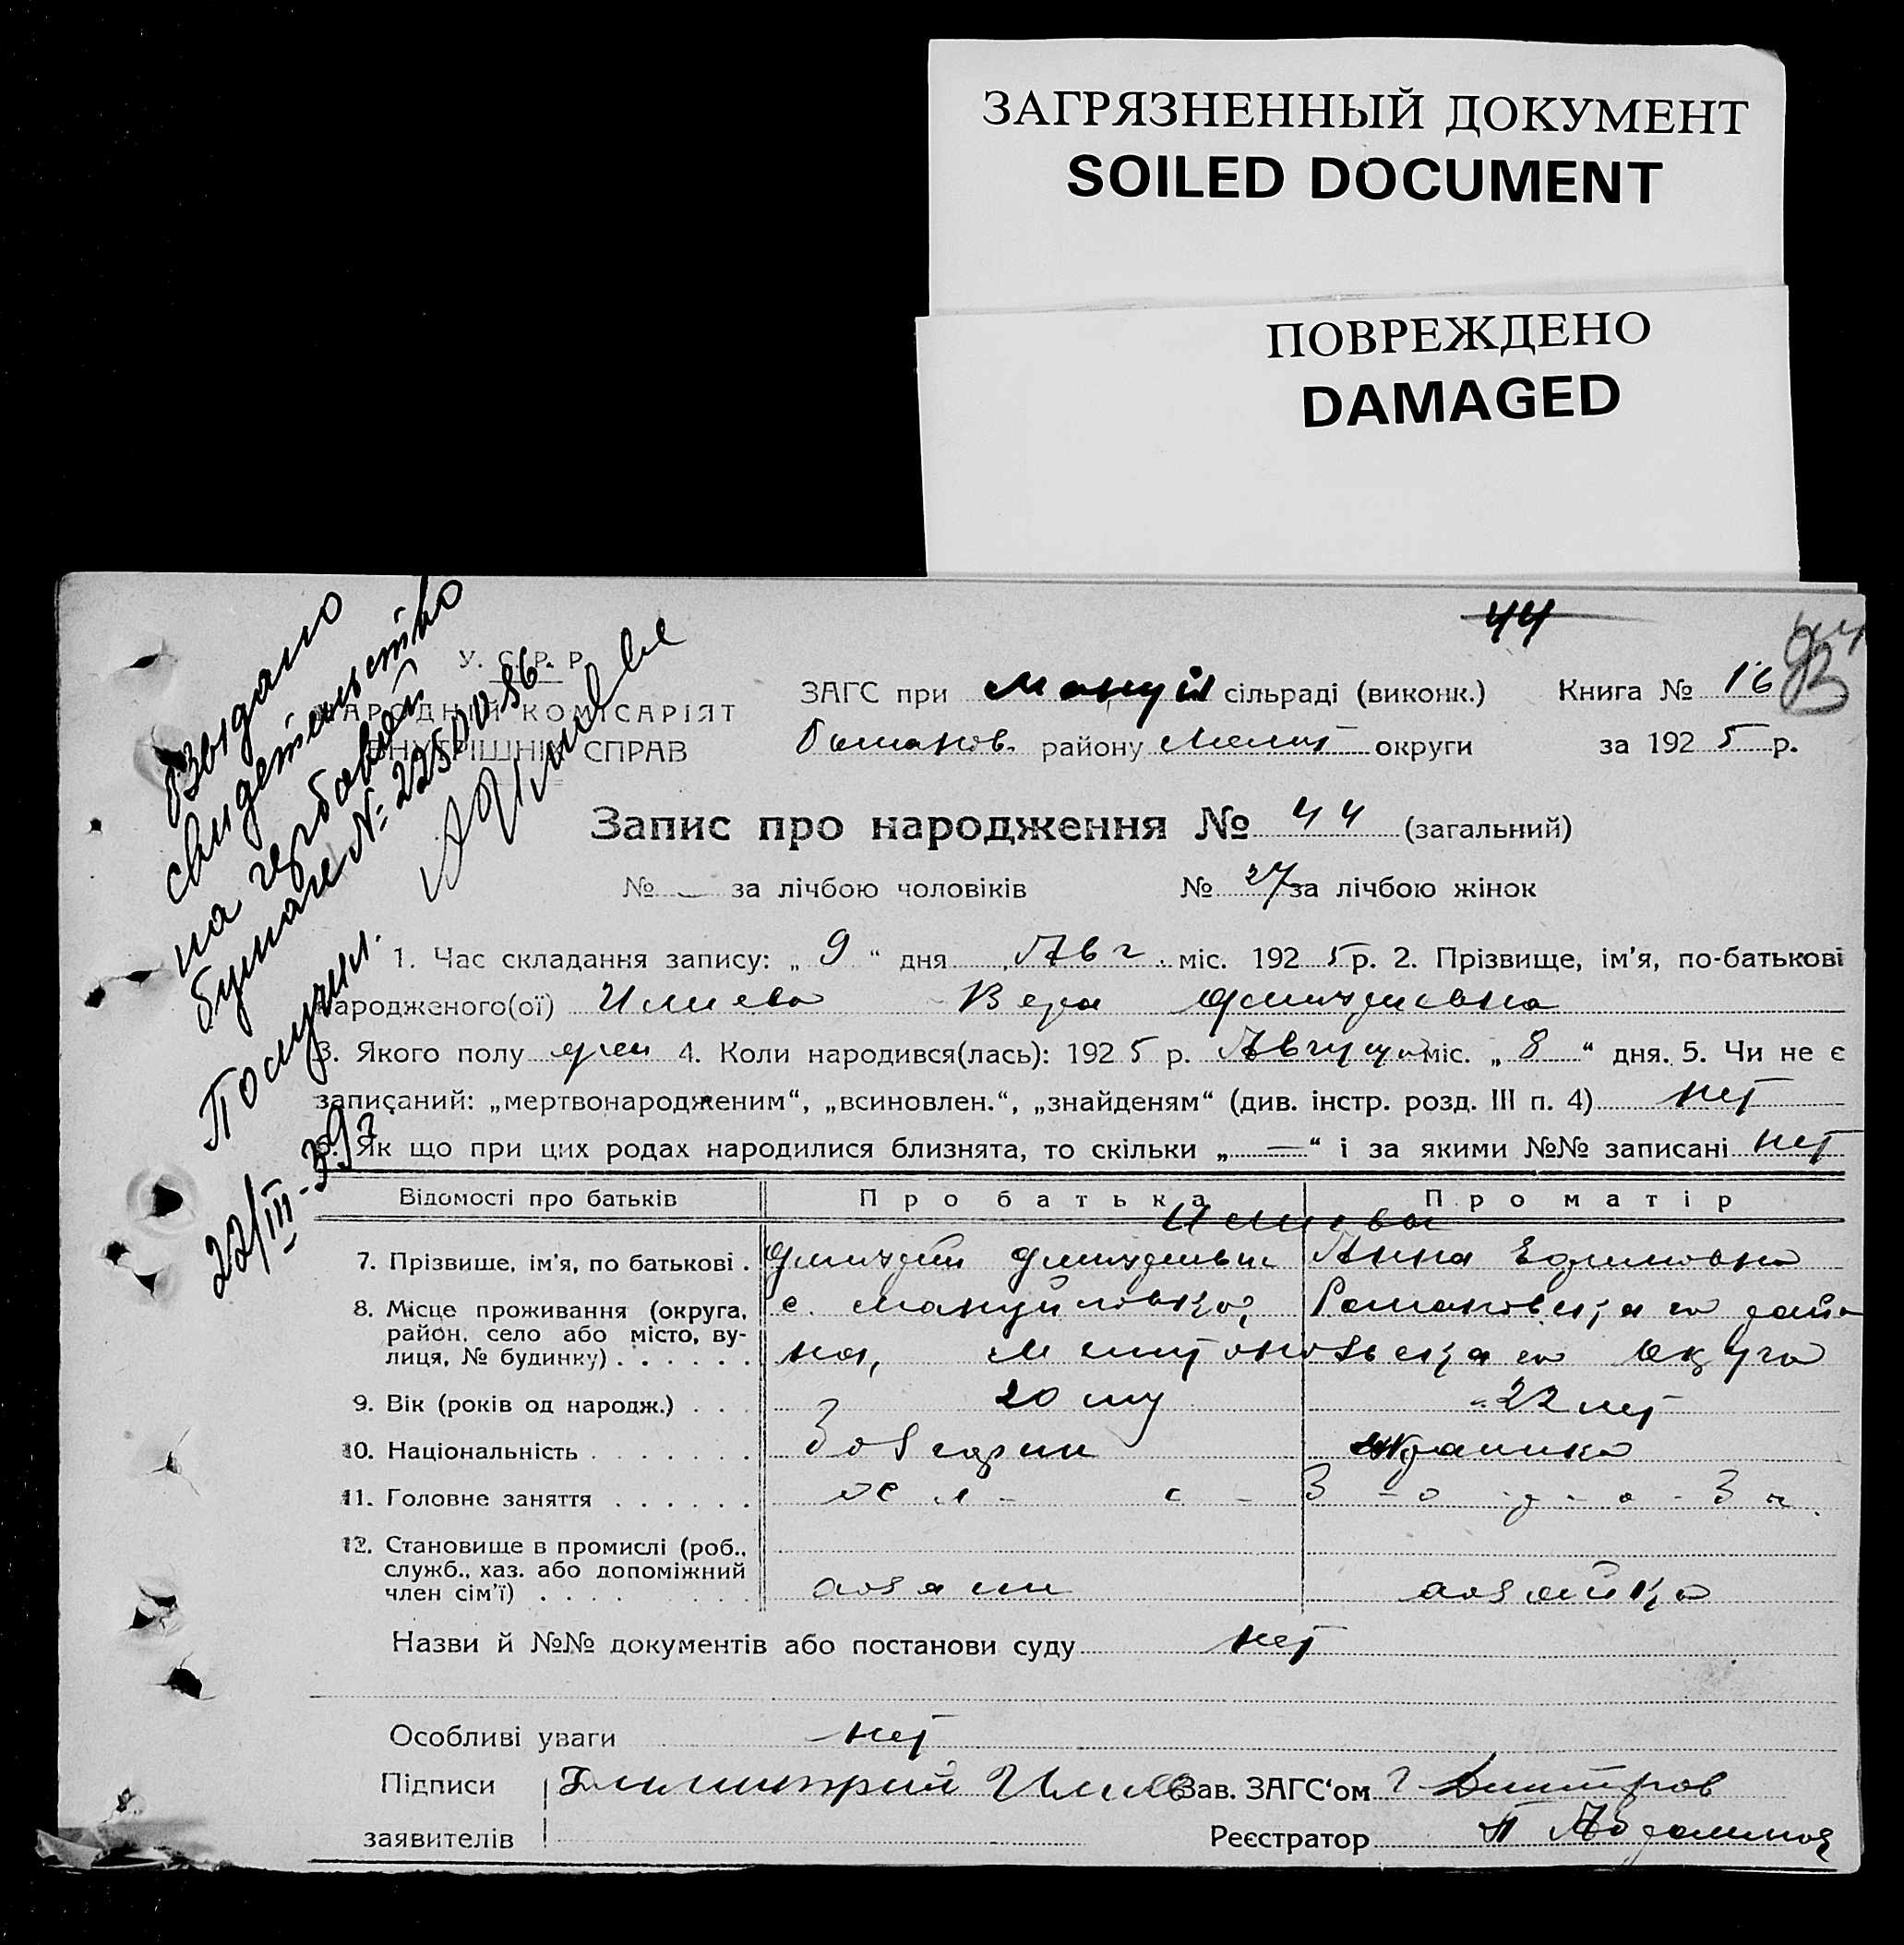 ЗАГРЯЗНЕННЫЙ ДОКУМЕНТ
SOILED DOCUMENT
ПОВРЕЖДЕНО
DAMAGED
44
Выдано
свидетельство
на гербовой
бумаге №: 2250086.
Получил.
22/III-39г
У. С. Р. Р.
НАРОДНІЙ КОМІСАРІЯТ
ВНУТРІШНІХ СПРАВ
ЗАГС при Мануй сільраді (виконк.) Книга № 16
Романов. району Мелит округи за 1925 р.
Запис про народження № 44 (загальний)
№ — за лічбою чоловіків № 27 за лічбою жінок
1. Час складання запису: „ 9 “ дня Авг. міс. 1925 р. 2. Прізвище, ім’я, по-батькові
народженого(ої) Илиева Вера Дмитриевна
3. Якого полу жен 4. Коли народився(лась): 1925 р. Августа міс. „ 8 “ дня. 5. Чи не є
записаний: „мертвонародженим“, „всиновлен.“, „знайденям“ (див. інстр. розд. III п. 4) нет
6. Як що при цих родах народилися близнята, то скільки „ — “ і за якими №№ записані нет
Відомості про батьків Про батька Про матір
Илиевы
7. Прізвише, ім’я, по батькові . Дмитрий Дмитриевич Анна Ефимовна
8. Місце проживання (округа, район, село або місто, вулиця, № будинку) . . . . . . с. Мануйловка, Романовского райо
на, Мелитопольского Округа
9. Вік (років од народж.) . . . 20 лет 22 лет
10. Національність . . . . . . . Болгарин
11. Головне заняття . . . . . .
12. Становище в промислі (роб., служб., хаз. або допоміжний член сім’ї) . . . . хозяин хозяйка
Назви й №№ документів або постанови суду нет
Особливі уваги нет
Підписи Димитрий Илиев Зав. ЗАГС‘ом Г Димитров
заявителів Реєстратор П